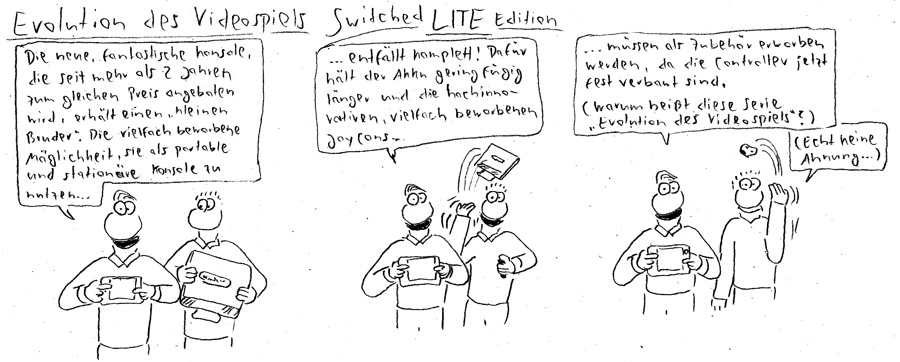 Evolution des Videospiels Switched LITE Edition
Die neue, fantastische Konsole,
die seit mehr als 2 Jahren
zum gleichen Preis angeboten
wird, erhält einen „kleinen
Bruder". Die vielfach beworbene
Möglichkeit, sie als portable
und stationäre Konsole zu
nutzen...
... entfällt komplett! Dafür
hält der Akku geringfügig
länger und die hochinno-
vativen, vielfach beworbenen
JoyCons...
... müssen als Zubehör erworben
werden, da die Controller jetzt
fest verbaut sind.
(Warum heißt diese Serie
„Evolution des Videospiels"?)
(Echt keine
Ahnung...)